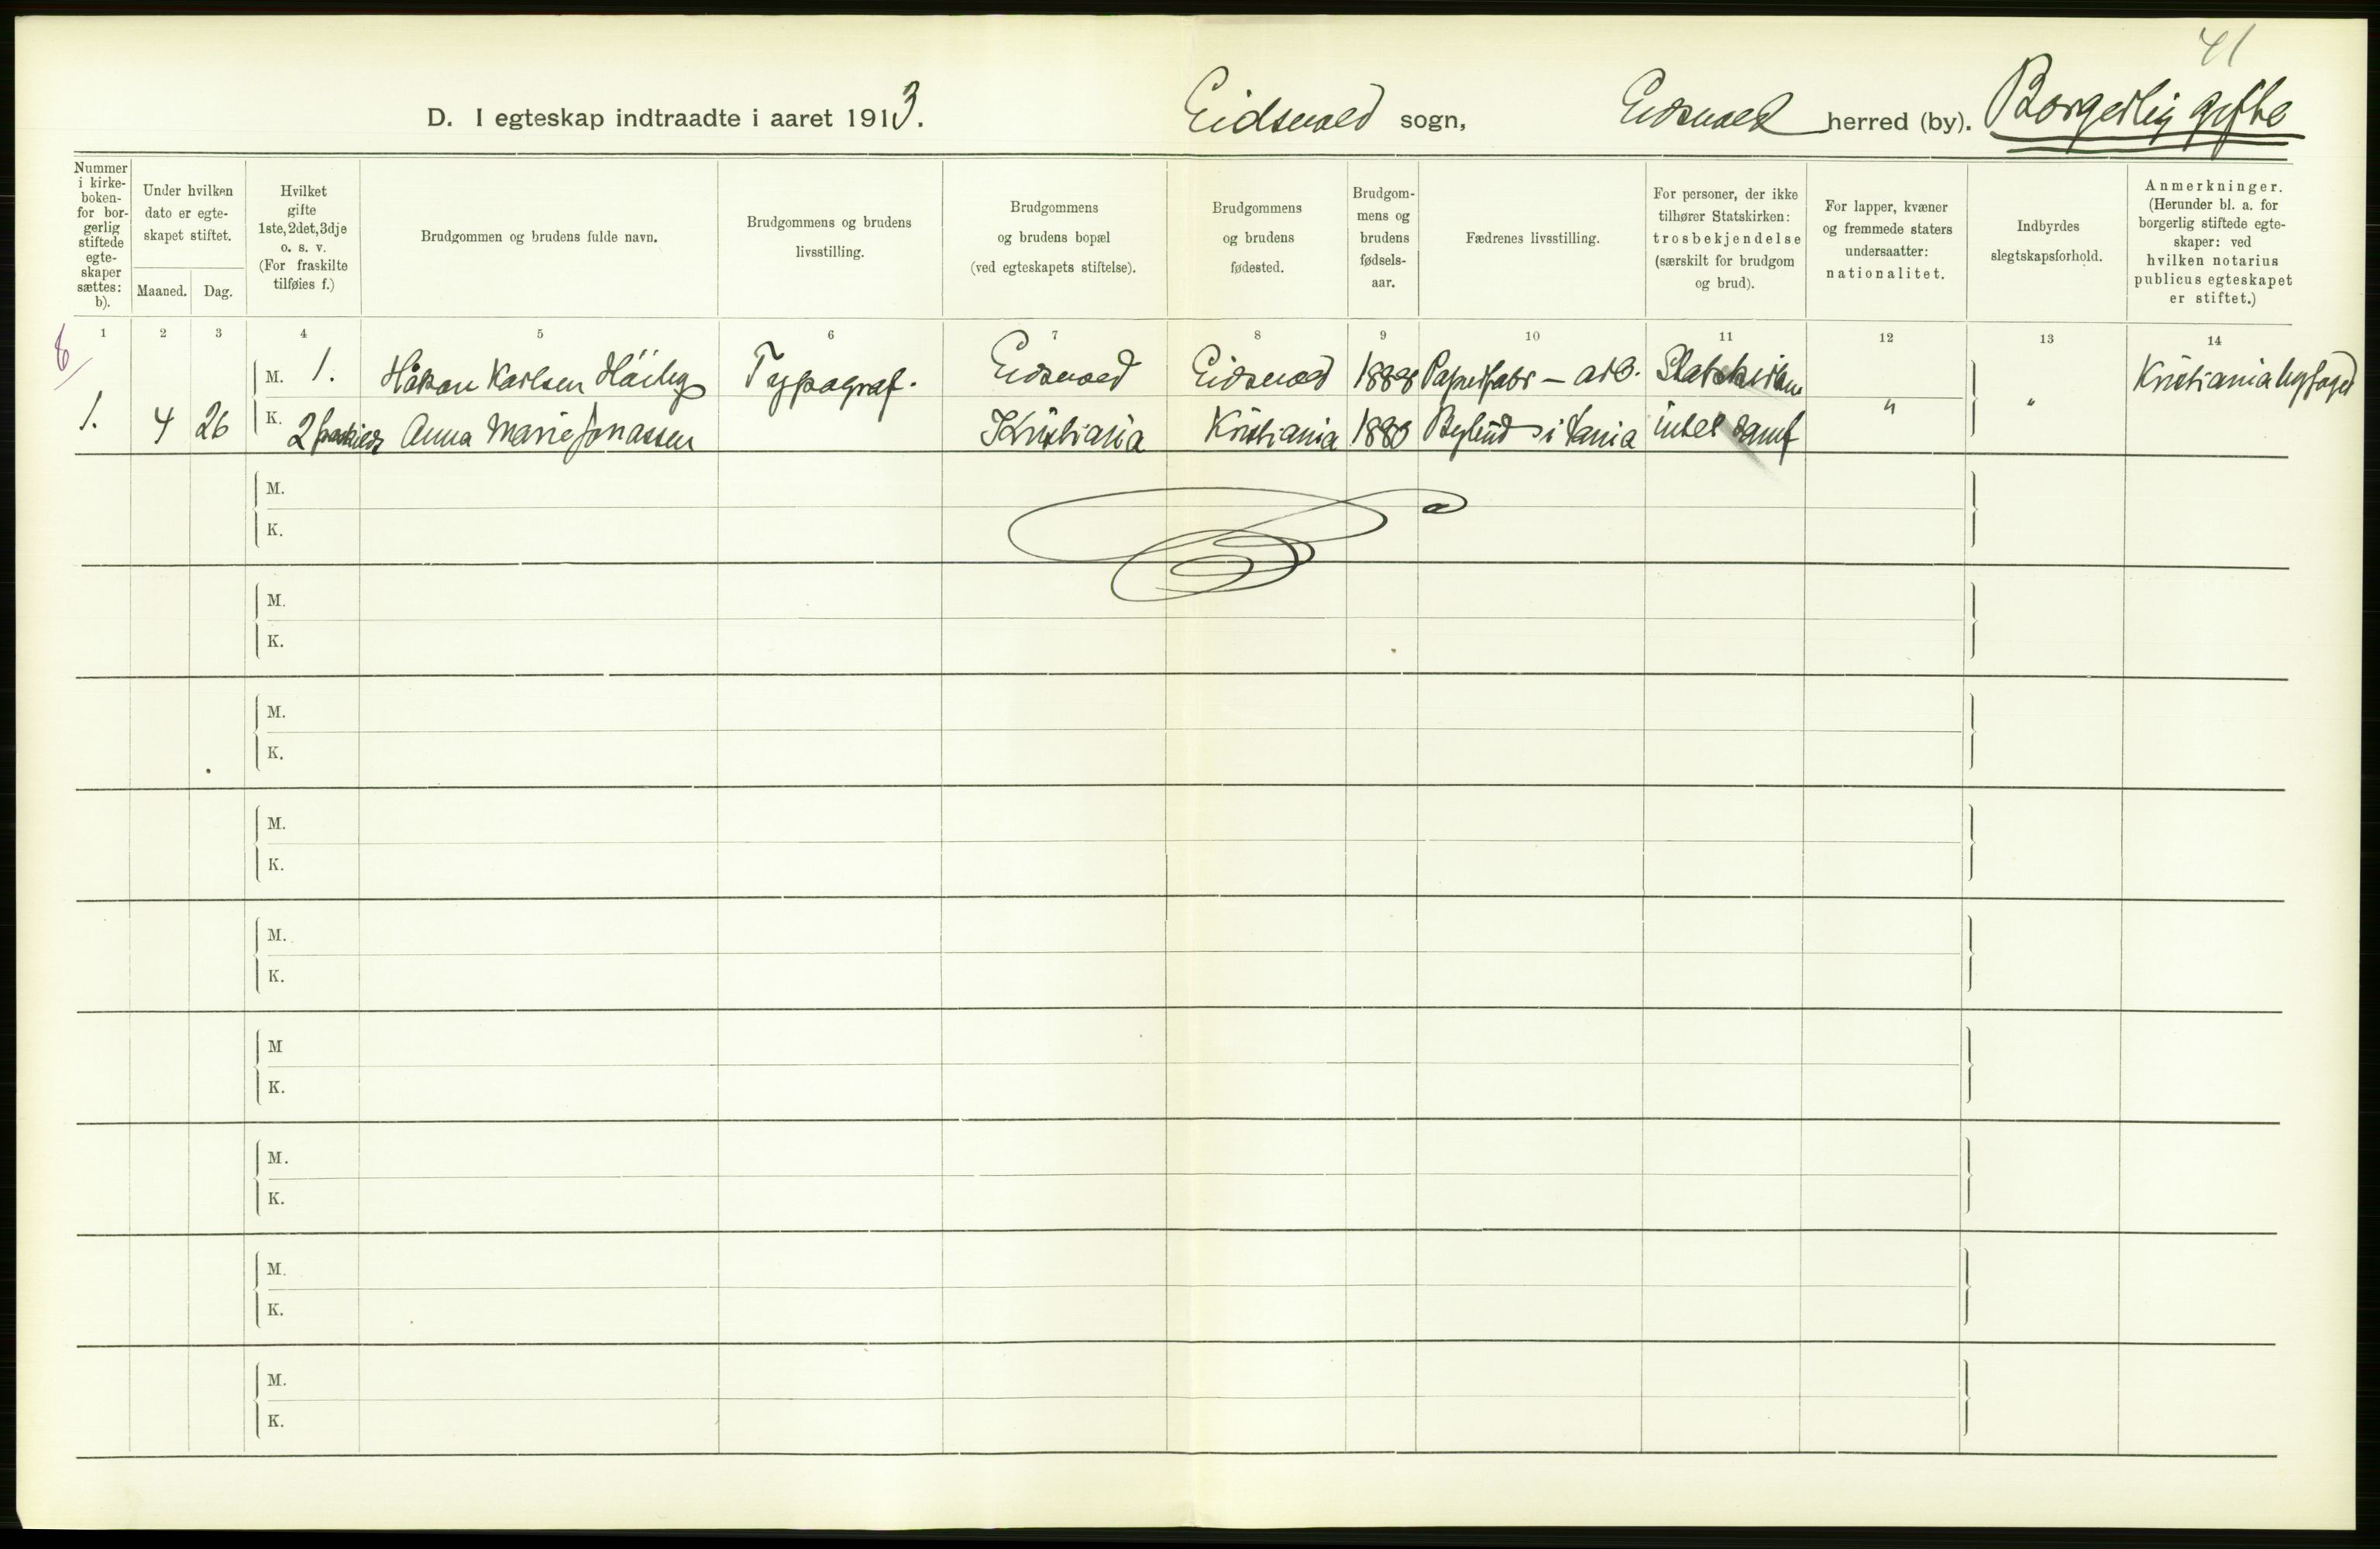 41
D. I egteskap indtraadte i aaret 1913. Eidsvold sogn, Eidsvold herred (by). Borgerlig gifte
Nummer i kirke-boken- for bor-gerlig stiftede egte-skaper sættes: b).
Under hvilken dato er egte-skapet stiftet.
Maaned. Dag.
Hvilket gifte 1ste, 2det, 3dje o. s. v. (For fraskilte tilføies f.)
Brudgommen og brudens fulde navn.
Brudgommens og brudens livsstilling.
Brudgommens og brudens bopæl (ved egteskapets stiftelse).
Brudgommens og brudens fødested.
Brudgom-mens og brudens fødsels-aar.
Fædrenes livsstilling.
For personer, der ikke tilhører Statskirken: trosbekjendelse (særskilt for brudgom og brud).
For lapper, kvæner og fremmede staters undersaatter: nationalitet.
Indbyrdes slegtskapsforhold.
Anmerkninger. (Herunder bl. a. for borgerlig stiftede egte-skaper: ved hvilken notarius publicus egteskapet er stiftet.)
1 2 3 4 5 6 7 8 9 10 11 12 13 14
6
M. 1. Håkon Karlsen Typograf. Eidsvold Eidsvold 1888 Papirfabr - arb. Statskirken Kristiania byfoged
1. 4 26 K. 2 Anna Marie Jonassen Kristiania Kristiania 1880 i intet samf " "
M.
K.
M.
K.
M.
K.
M.
K.
M.
K.
M
K.
M.
K.
M.
K.
M.
K.